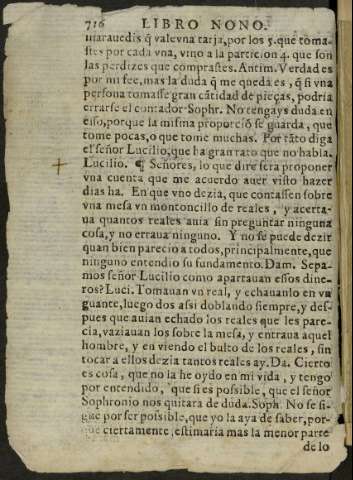 716 LIBRO NONO.
marauedis q̃ valevna tarja, por los 5. que toma-
stes por cada vna, vino a la particion 4. que son
las perdizes que comprastes. Antim. Verdad es
por mi fee, mas la duda q̃ me queda es, q̃ si vna
persona tomasse gran cãtidad de pieças, podria
errarse el contador. Sophr. No tengays duda en
esso, porque la misma proporciõ se guarda, que
tome pocas, o que tome muchas. Por tãto diga
el señor Lucilio, que ha gran rato que no habla.
Lucilio. ¶ Señores, lo que dire sera proponer
vna cuenta que me acuerdo auer visto hazer
dias ha. En que vno dezia, que contassen sobre
vna mesa vn montoncillo de reales, y acerta-
ua quantos reales auia sin preguntar ninguna
cosa, y no erraua ninguno. Y no se puede dezir
quan bien parecio a todos, principalmente, que
ninguno entendio su fundamento. Dam. Sepa-
mos señor Lucilio como apartauan essos dine-
ros? Luci. Tomauan vn real, y echauanlo en vn
guante, luego dos assi doblando siempre, y des-
pues que auian echado los reales que les pare-
cia, vaziauan los sobre la mesa, y entraua aquel
hombre, y en viendo el bulto de los reales, sin
tocar a ellos dezia tantos reales ay. Da. Cierto
es cosa, que no la he oydo en mi vida, y tengo
por entendido, que si es possible, que el señor
Sophronio nos quitara de duda. Soph. No se si-
gue por ser possible, que yo la aya de saber, por-
que ciertamente estimaria mas la menor parte
de lo